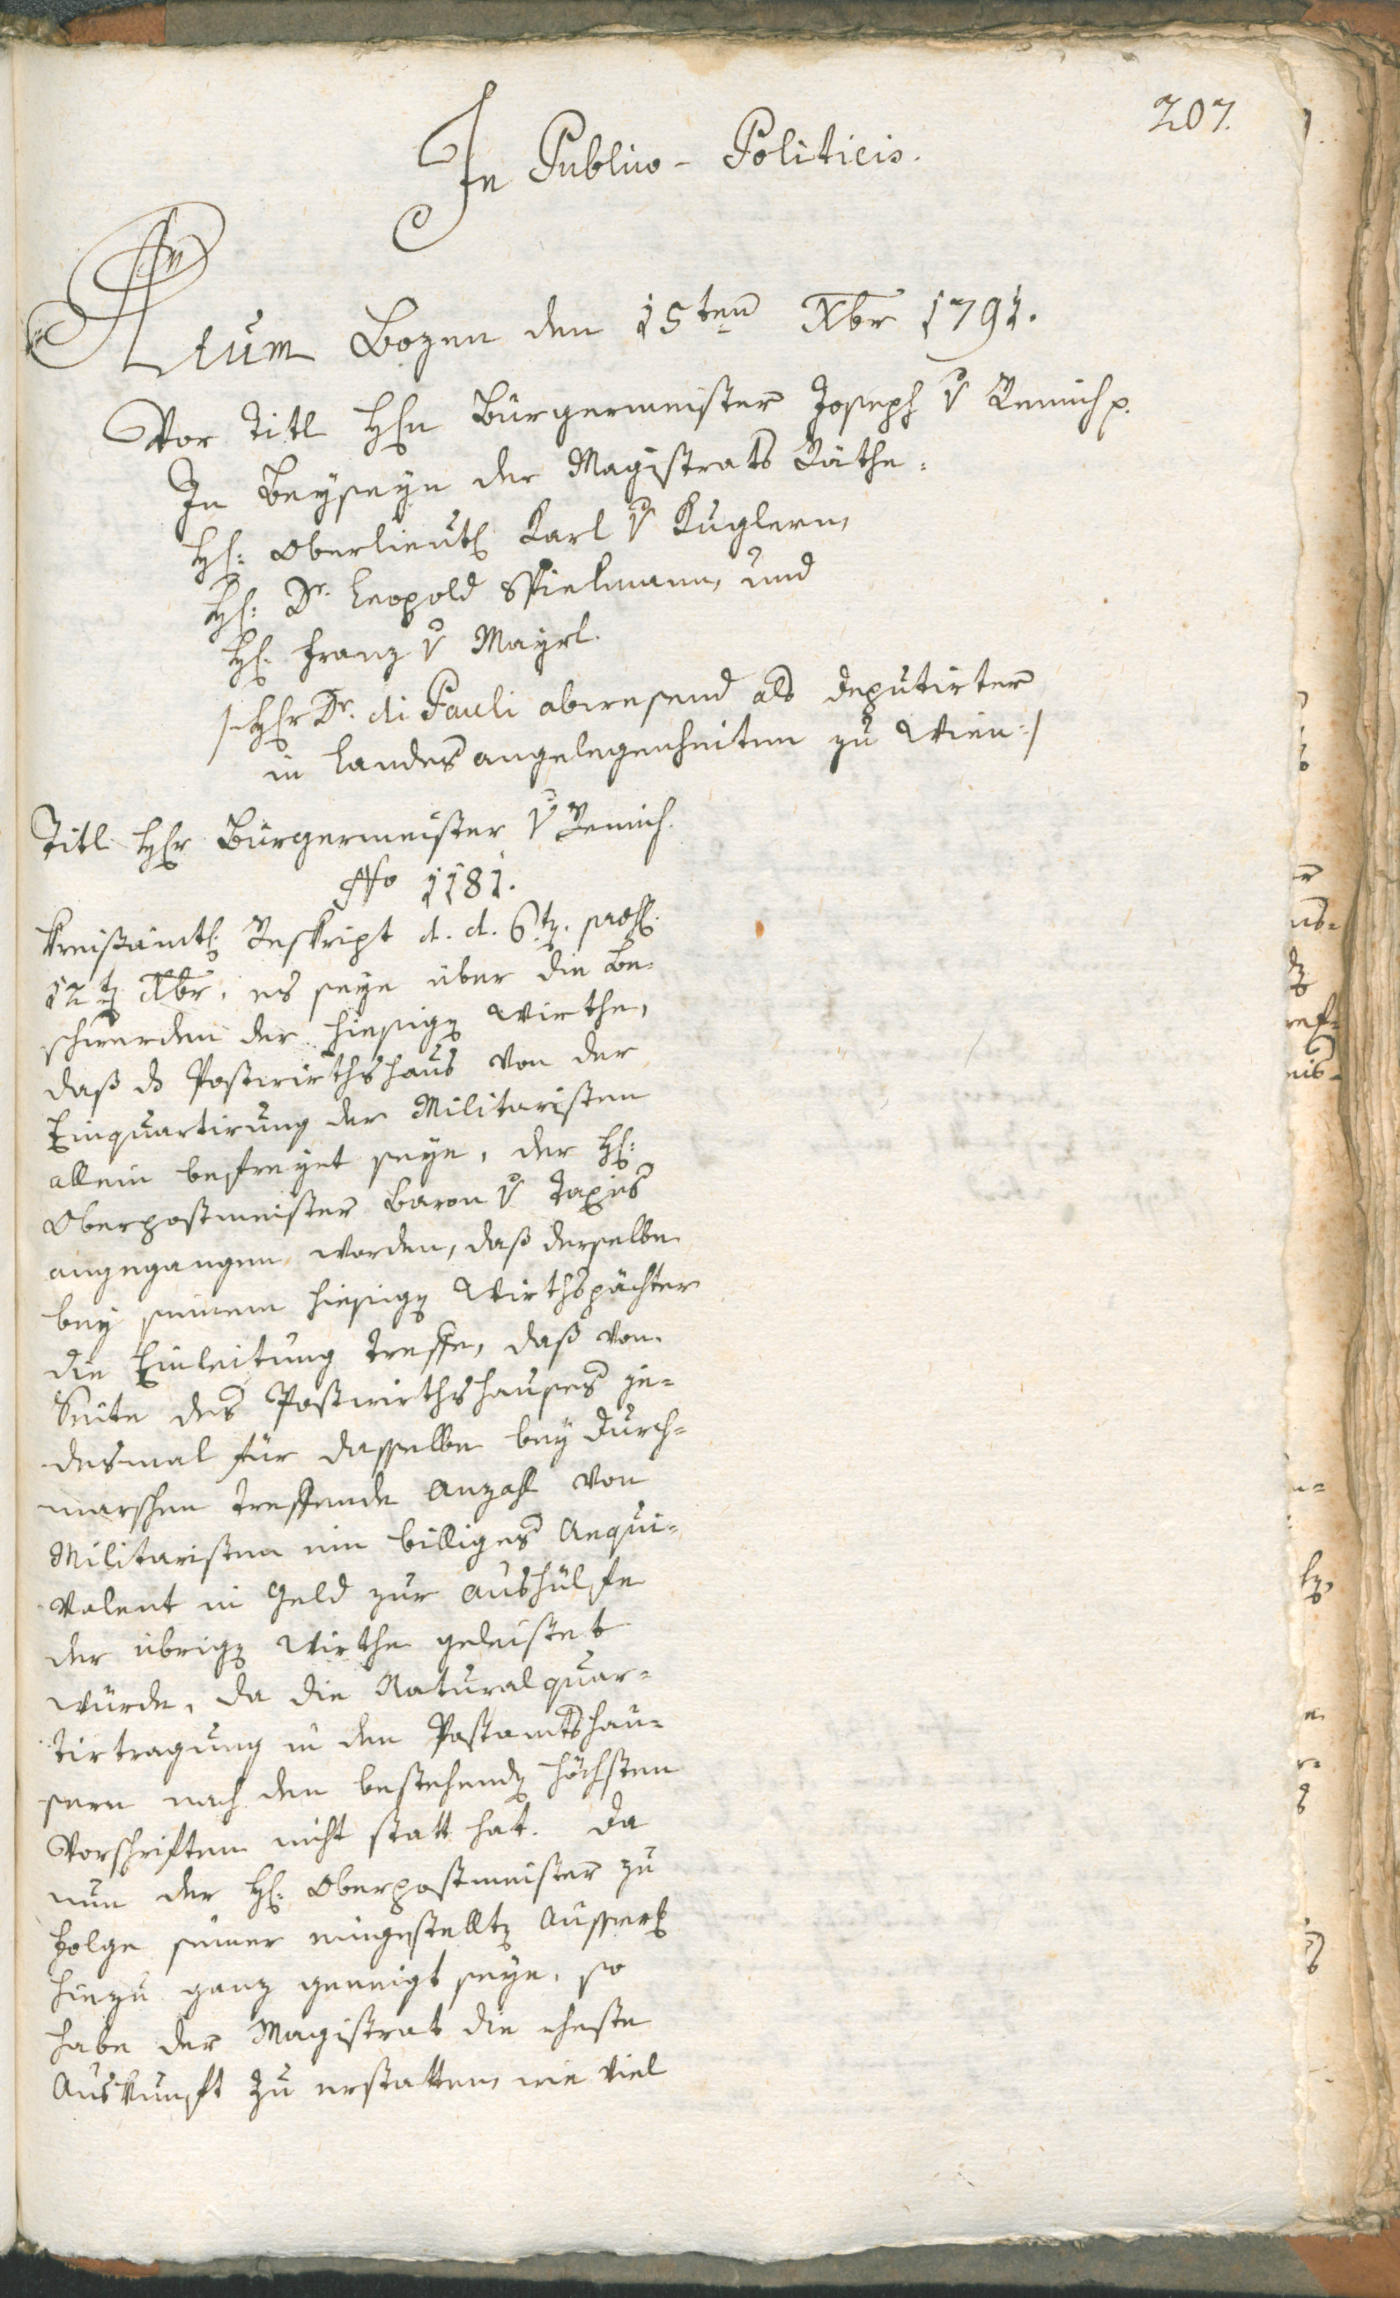 207.
In Publico-Politicis.
Actum Bozen den 15ten Xbr 1791.
Vor Titl Hhn Bürgermeister Joseph v Remich p.
In Beyseyn der Magistrats Räthe:
Hh: Oberlieut. Karl v Kuglern,
Hh: Dr. Leopold Spielmann, und
Hh. Franz v Mayrl.
/: Hhr Dr. di Pauli abwesend als deputirter
in Landesangelegenheiten zu Wien :/
Titl Hhr Bürgermeister v Remich.
No 1181.
Kreisämtl. Reskript d. d. 6t. praes.
12t Xbr, es seye über die Be-
schwerden der hiesigen Wirthe,
daß ds Postwirthshaus von der
Einquartirung der Militaristen
allein befreyet seye, der Hh:
Oberpostmeister Baron v Taxis
angegangen worden, daß derselbe
bey seinem hiesigen Wirthspächter
die Einleitung treffe, daß von
Seite des Postwirthshauses je-
desmal für dasselbe bey Durch-
marschen treffende Anzahl von
Militaristen ein billiges Aequi-
valent in Geld zur Aushülfe
der übrigen Wirthe geleistet
würde, da die Naturalquar-
tirtragung in den Postamtshäu-
sern nach den bestehenden höchsten
Vorschriften nicht statt hat. Da
nun der Hh: Oberpostmeister zu
Folge seiner eingestellten Ausserung
hiezu ganz geneigt seye, so
habe der Magistrat die eheste
Auskunft zu erstatten, wie viel